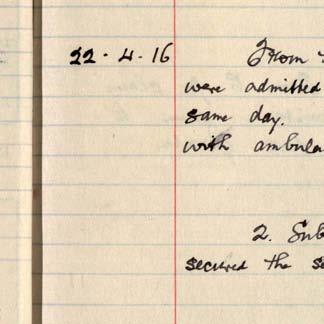 22 - 4 - 16 From
were admitted
same day.
with ambula
2. Sub
secured the se